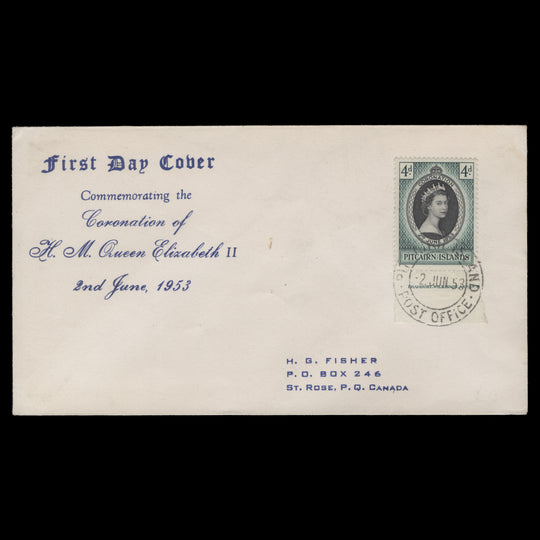 First Day Cover
Commemorating the
Coronation of
H. M. Queen Elizabeth II
2nd June, 1953
4d 4d
CORONATION
2 JUNE
PITCAIRN ISLANDS
-2 JUN 53
POST OFFICE
H. G. FISHER
P. O. BOX 246
ST. ROSE, P. Q. CANADA